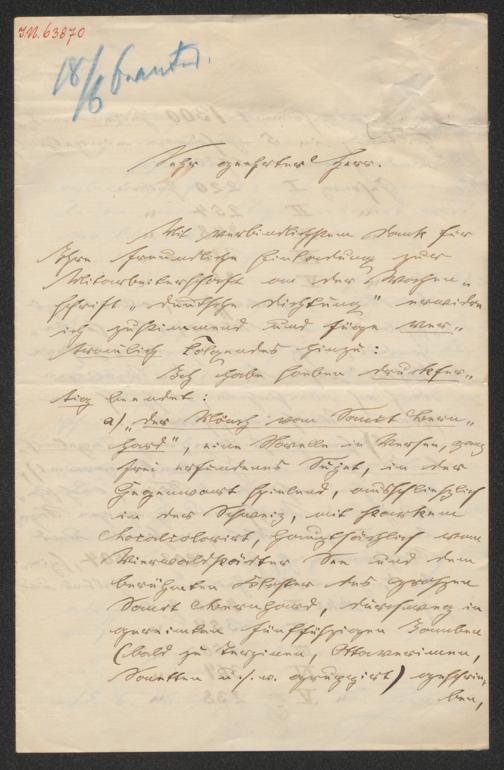 I.N. 63870
18/6 beantw.
Sehr geehrter Herr.
Mit verbindlichstem Dank für
Ihre freundliche Einladung zur
Mitarbeiterschaft an der Wochen-
schrift „deutsche Dichtung" erwidre
ich zustimmend und füge ver-
traulich Folgendes hinzu:
Ich habe soeben druckfer-
tig beendet:
a) „der Mönch vom Sanct Bern-
hard", eine Novelle in Versen, ganz
frei erfundenes Sujet, in der
Gegenwart spielend, ausschließlich
in der Schweiz, mit starkem
Localcolorit, hauptsächlich vom
Vierwaldstädter See und dem
berühmten Kloster des großen
Sanct Bernhard, durchweg in
gereimten fünffüßigen Jamben
(bald zu Terzinen, Ottaverimen,
Sonetten u.s.w. gruppirt) geschrie-
ben,